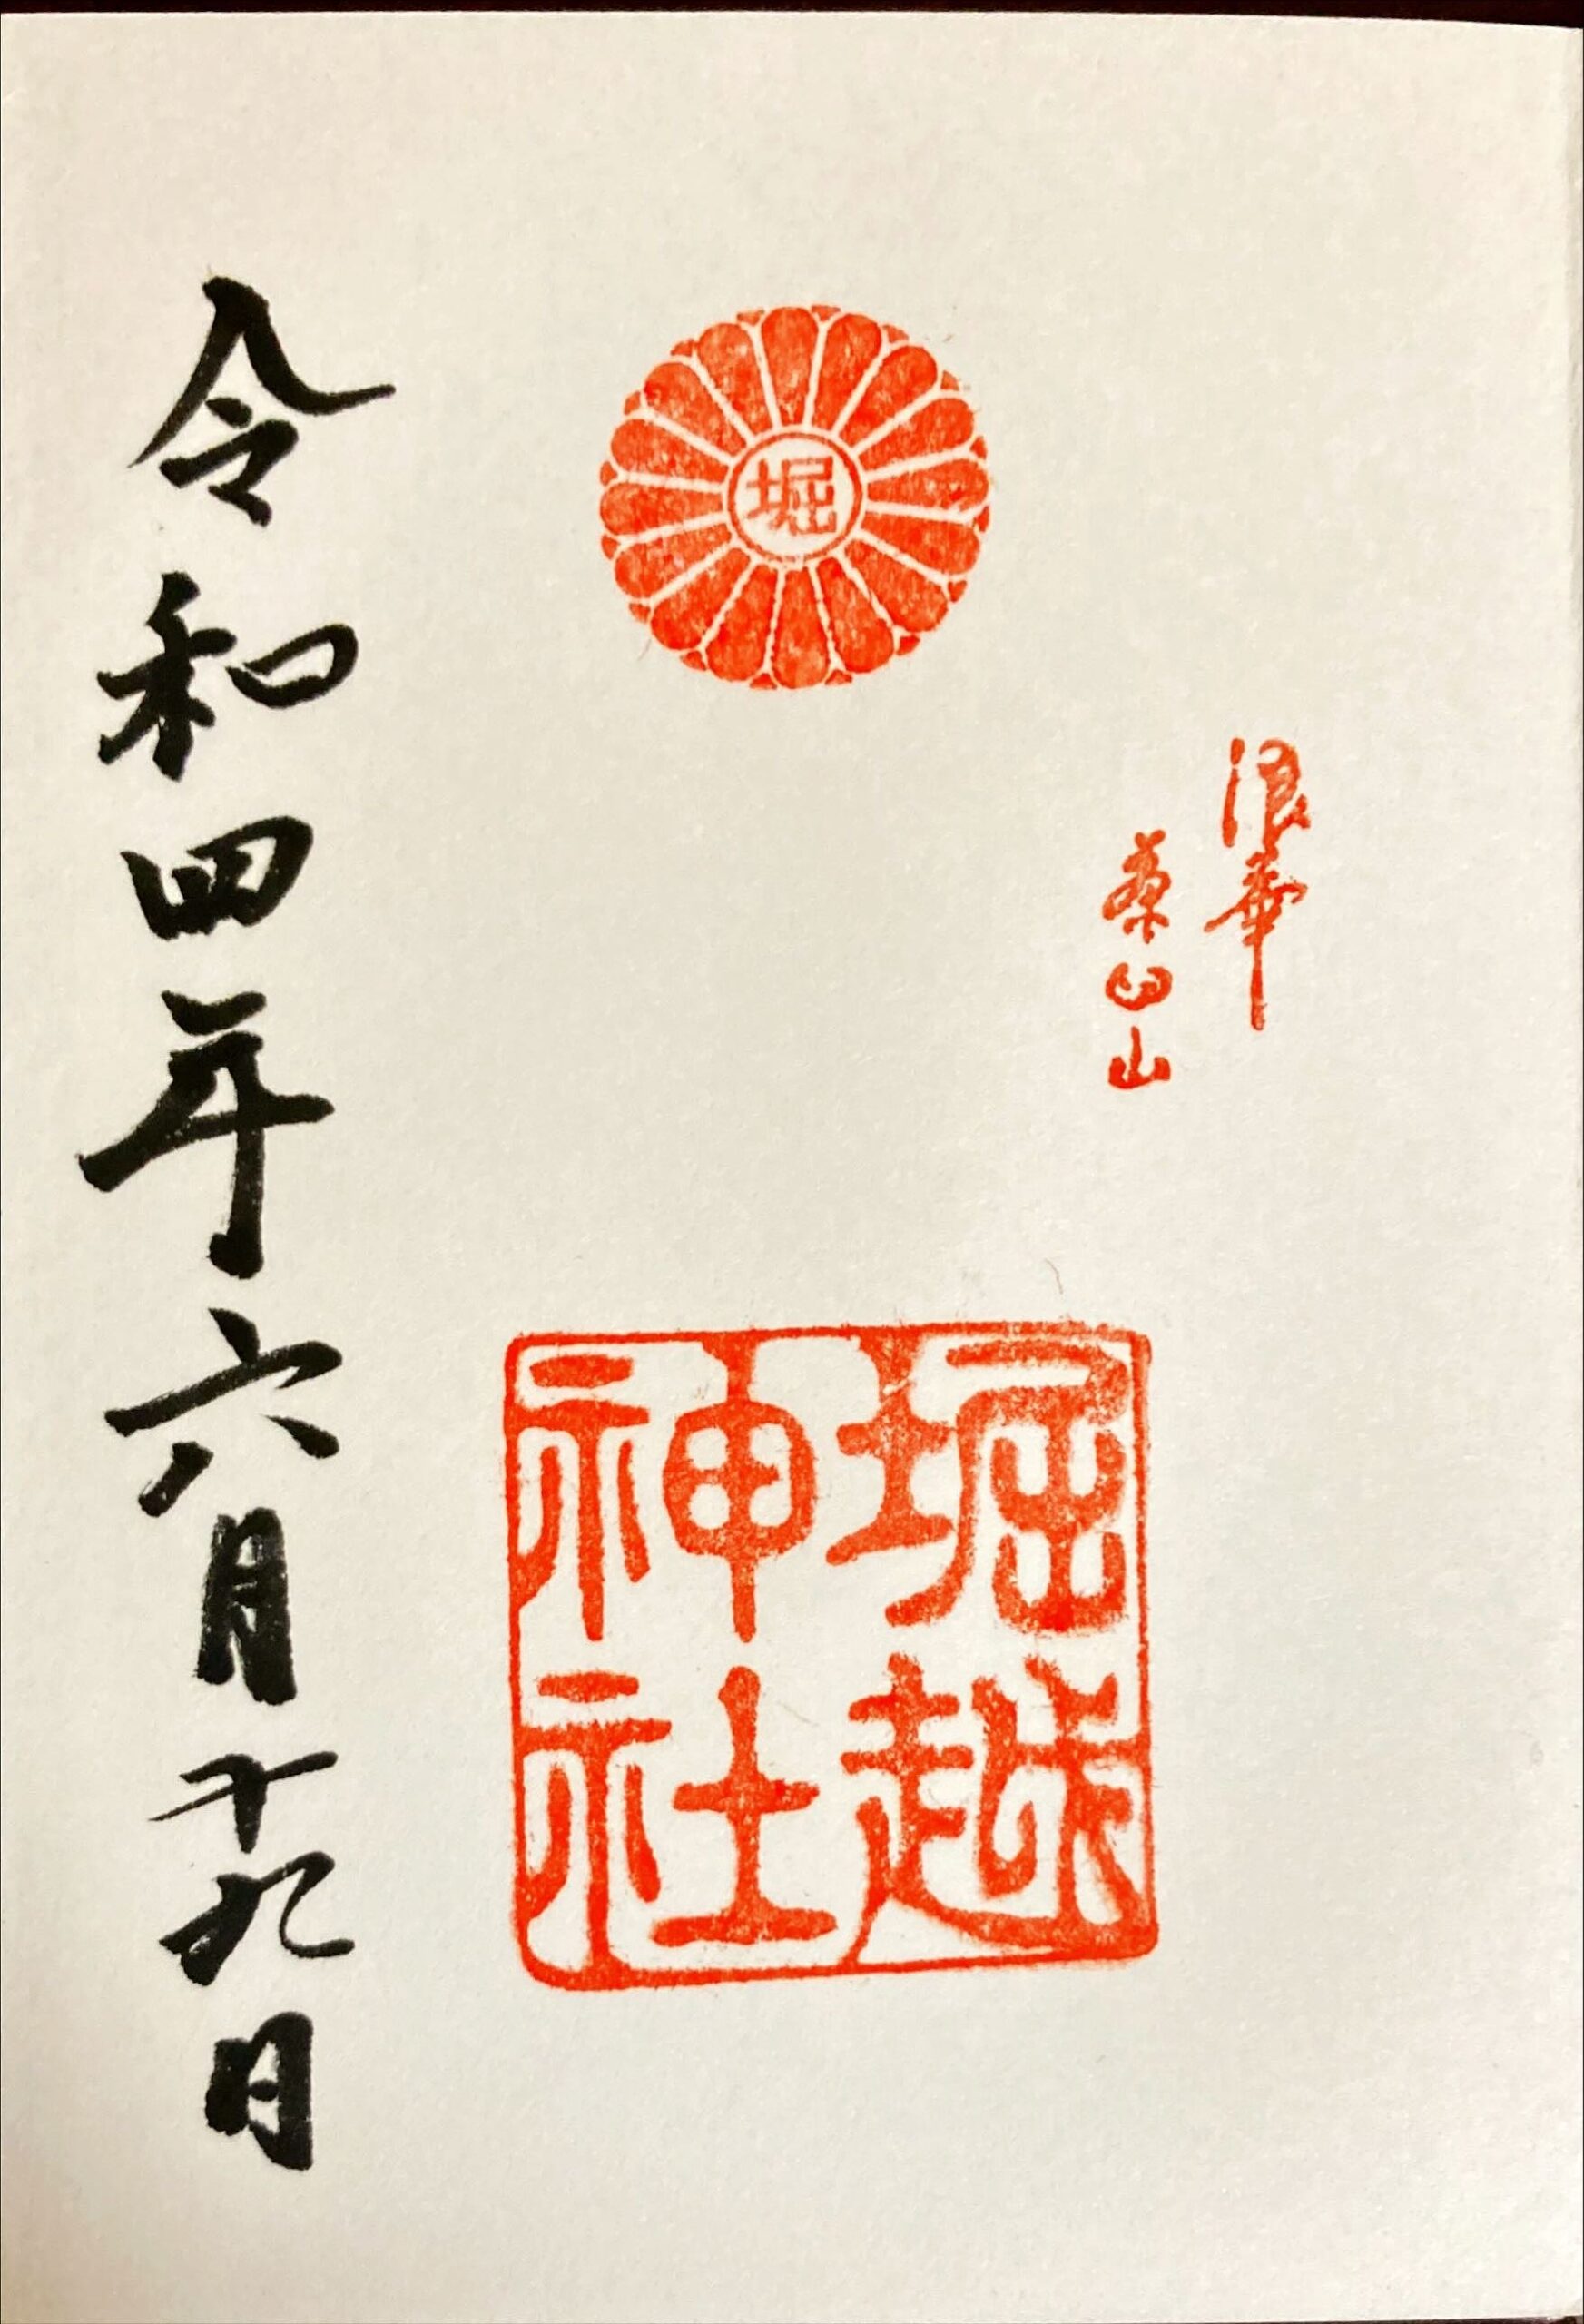 浪華
茶臼山
堀
堀越
神社
令和四年六月十九日